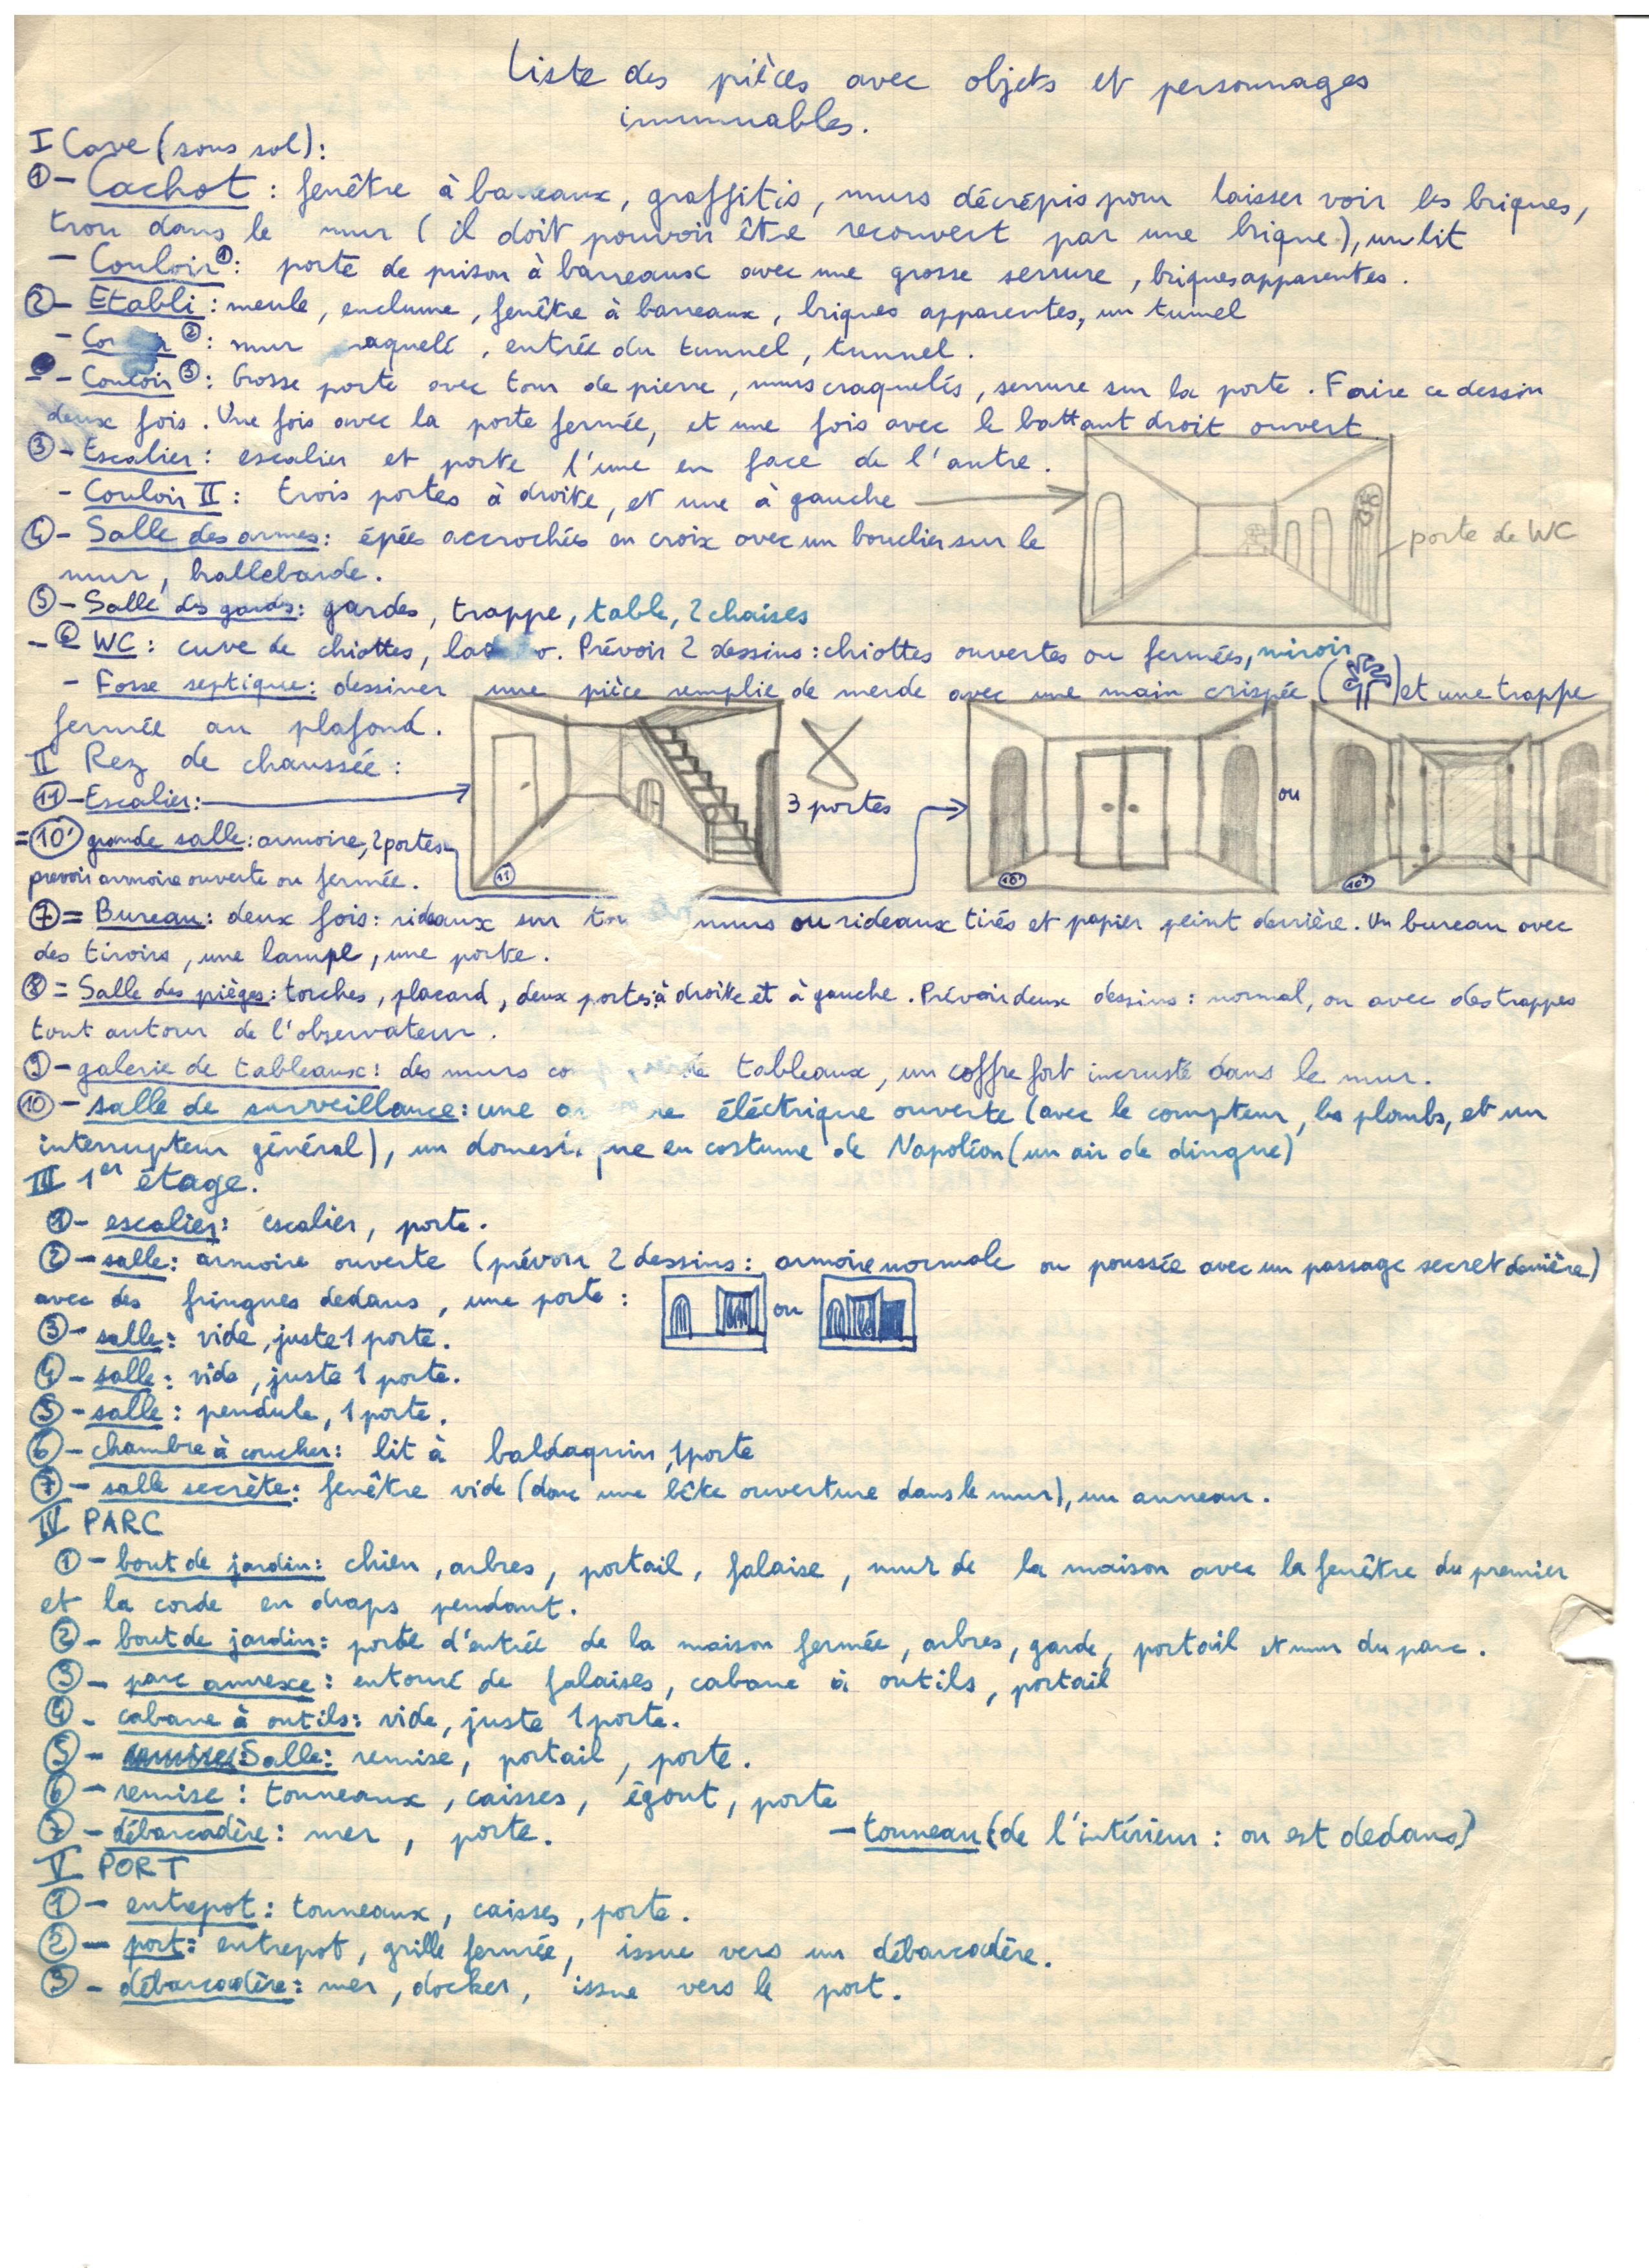 Liste des pièces avec objets et personnages
immuables.
I Cave (sous sol):
① - Cachot : fenêtre à barreaux, graffitis, murs décrépis pour laisser voir les briques,
trou dans le mur ( il doit pouvoir être recouvert par une brique), un lit
- Couloir ① : porte de prison à barreaux avec une grosse serrure, briques apparentes.
② - Etabli : meule, enclume, fenêtre à barreaux, briques apparentes, un tunnel
- ② : mur, entrée du tunnel, tunnel.
- - Couloir ③ : Grosse porte avec tour de pierre, murs craquelés, serrure sur la porte. Faire ce dessin
deux fois. Une fois avec la porte fermée, et une fois avec le battant droit ouvert
③ - Escalier : escalier et porte l'une en face de l'autre.
- Couloir II : trois portes à droite, et une à gauche
WC
④ - Salle des armes : épées accrochées en croix avec un bouclier sur le
porte de WC
mur, hallebarde.
⑤ - Salle des gardes : gardes, trappe, table, 2 chaises
- ⑥ WC : cuve de chiottes, . Prévoir 2 dessins : chiottes ouvertes ou fermées, miroir
- Fosse septique : dessiner une pièce remplie de merde avec une main crispée ( ) et une trappe
fermée au plafond.
II Rez de chaussée :
⑪ - Escalier :
3 portes
ou
= ⑩' grande salle : armoire, 2 portes
prevoir armoire ouverte ou fermée.
11
10'
10'
⑦ = Bureau : deux fois : rideaux sur murs ou rideaux tirés et papier peint derrière. Un bureau avec
des tiroirs, une lampe, une porte.
⑧ = Salle des pièges : torches, placard, deux portes : à droite et à gauche. Prévoir deux dessins : normal, ou avec des trappes
tout autour de l'observateur.
⑨ - galerie de tableaux : des murs de tableaux, un coffre fort incrusté dans le mur.
⑩ - salle de surveillance : une éléctrique ouverte (avec le compteur, les plombs, et un
interrupteur général), un domestique en costume de Napoléon (un air de dingue)
III 1er étage.
① - escalier : escalier, porte.
② - salle : armoire ouverte (prévoir 2 dessins : armoire normale ou poussée avec un passage secret derrière)
avec des fringues dedans, une porte :
ou
③ - salle : vide, juste 1 porte.
④ - salle : vide, juste 1 porte.
⑤ - salle : pendule, 1 porte.
⑥ - chambre à coucher : lit à baldaquin, 1 porte
⑦ - salle secrète : fenêtre vide (donc une bête ouverture dans le mur), un anneau.
IV PARC
① - bout de jardin : chien, arbres, portail, falaise, mur de la maison avec la fenêtre du premier
et la corde en draps pendant.
② - bout de jardin : porte d'entrée de la maison fermée, arbres, garde, portail et mur du parc.
③ - parc annexe : entouré de falaises, cabane à outils, portail
④ - cabane à outils : vide, juste 1 porte.
⑤ - Salle : remise, portail, porte.
⑥ - remise : tonneaux, caisses, égout, porte
⑦ - débarcadère : mer, porte.
- tonneau (de l'intérieur : on est dedans)
V PORT
① - entrepot : tonneaux, caisses, porte.
② - port : entrepot, grille fermée, issue vers un débarcadère.
③ - débarcadère : mer, docker, issue vers le port.